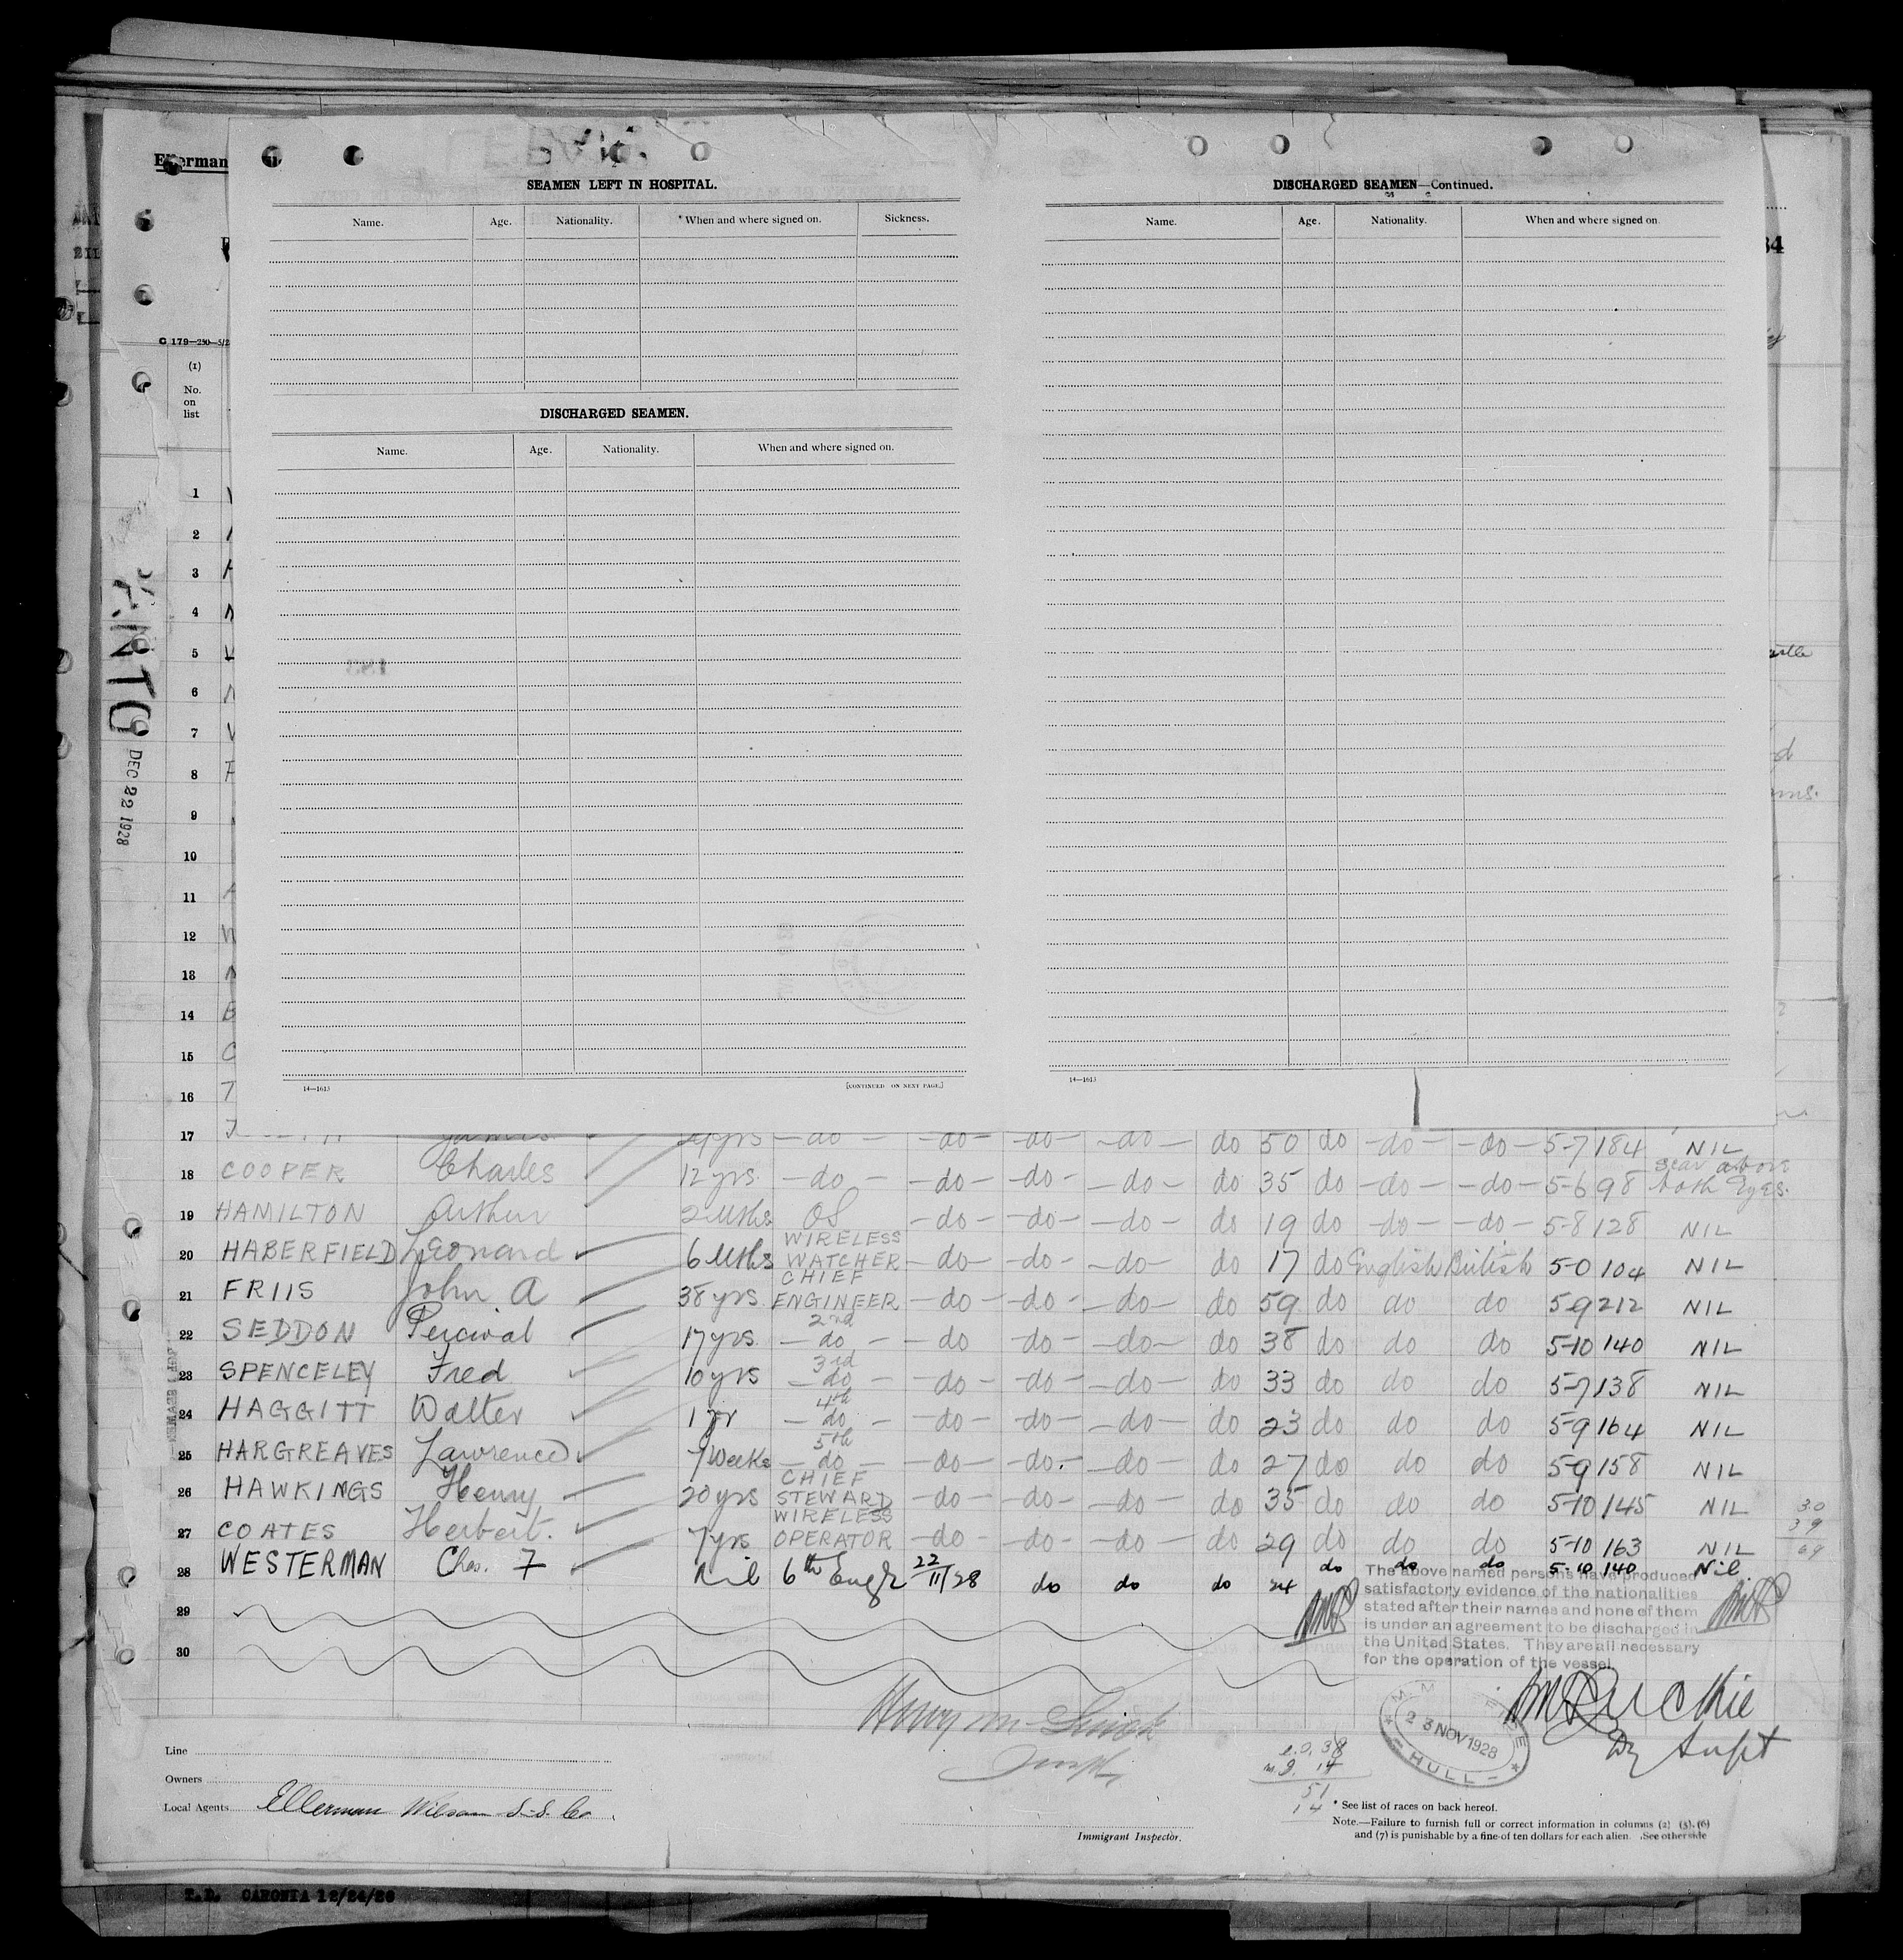 SEAMEN LEFT IN HOSPITAL.
Name. Age. Nationality. When and where signed on. Sickness.
DISCHARGED SEAMEN.
Name. Age. Nationality. When and where signed on.
14—1613 [CONTINUED ON NEXT PAGE.]
DISCHARGED SEAMEN—Continued.
Name. Age. Nationality. When and where signed on
14—1613
G 179—250—5/2
(1)
No.
on
list
DEC 22 1928
1
2
3
4
5
6
7
8
9
10
11
12
13
14
15
16
17 James 4yrs —do— —do— —do— —do— do 50 do —do— —do— 5-7 184 NIL
18 COOPER Charles 12 yrs. —do— —do— —do— —do— do 35 do —do— —do— 5-6 98 scar above both Eyes.
19 HAMILTON Arthur 2 Mths OS —do— —do— —do— do 19 do —do— —do— 5-8 128 NIL
20 HABERFIELD Leonard 6 Mths WIRELESS WATCHER —do— —do— —do— do 17 do English British 5-0 104 NIL
21 FRIIS John A 38 yrs CHIEF ENGINEER —do— —do— —do— do 59 do do do 5-9 212 NIL
22 SEDDON Percival 17 yrs. 2nd —do— —do —do— —do— do 38 do do do 5-10 140 NIL
23 SPENCELEY Fred 10 yrs 3rd —do— —do— —do— —do— do 33 do do do 5-7 138 NIL
24 HAGGITT Walter 1 yr 4th —do— —do— —do— —do— do 23 do do do 5-9 164 NIL
25 HARGREAVES Lawrence 7 Weeks 5th —do— —do— —do— —do— do 27 do do do 5-9 158 NIL
26 HAWKINGS Henry 20 yrs CHIEF STEWARD —do— —do— —do— do 35 do do do 5-10 145 NIL
27 COATES Herbert. 7 yrs WIRELESS OPERATOR —do— —do— —do— do 29 do do do 5-10 163 NIL
28 WESTERMAN Chas. F Nil 6th Engr 22/11/28 do do do 24 do do do 5-10 140 Nil.
29
30
30
39
69
The above named persons have produced
satisfactory evidence of the nationalities
stated after their names and none of them
is under an agreement to be discharged in
the United States. They are all necessary
for the operation of the vessel
23 NOV 1928
HULL
Dy Supt
Line
Owners
Local Agents Ellerman Wilson S.S. Co.
Immigrant Inspector.
51
14
* See list of races on back hereof.
Note.—Failure to furnish full or correct information in columns (2) (5), (6)
and (7) is punishable by a fine of ten dollars for each alien. See other side
T.D. CARONIA 12/24/28